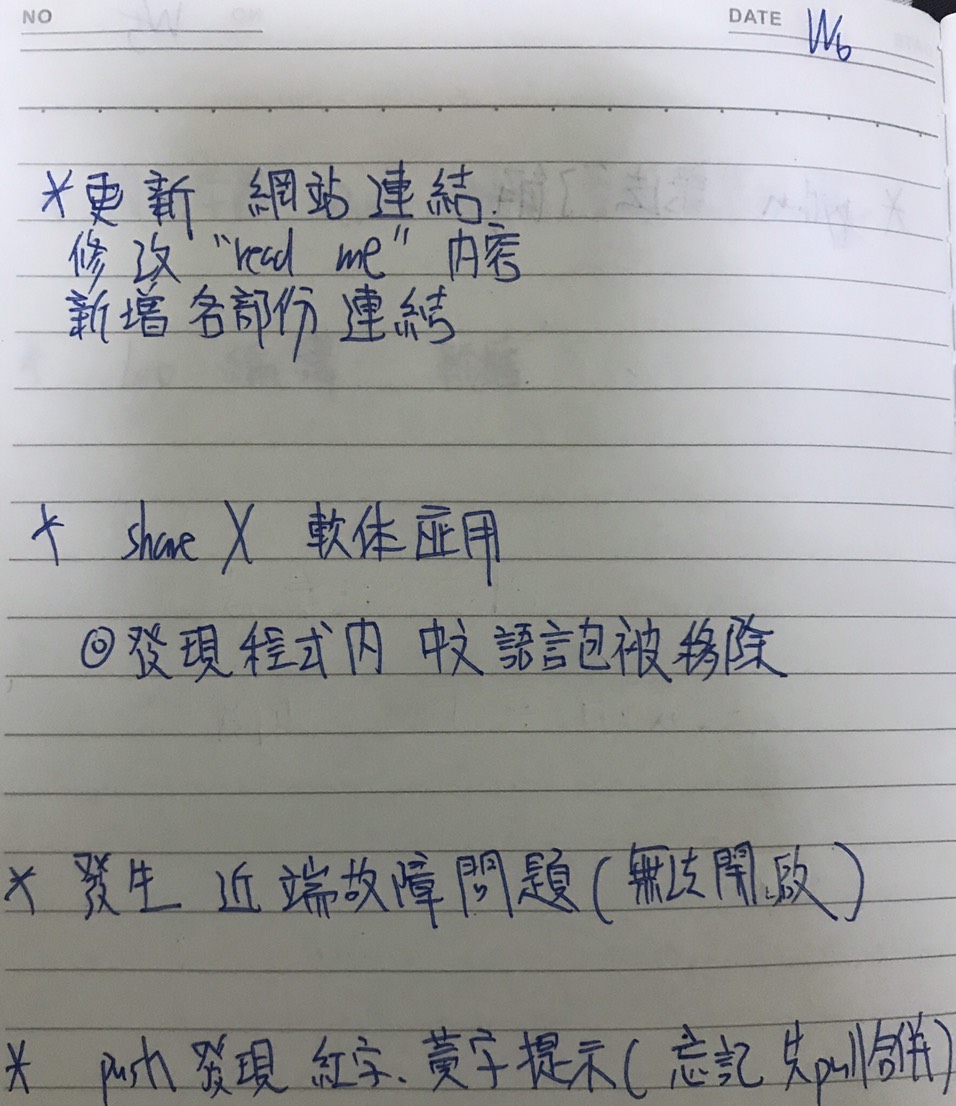 NO
DATE W6
*更新 網站連結.
修改 "read me" 內容
新增各部份連結
* share X 軟体应用
◎發現程式內 中文語言包被移除
* 發生 近端故障問題(無法開啟)
* push 發現 紅字、黃字提示(忘記先pull合併)